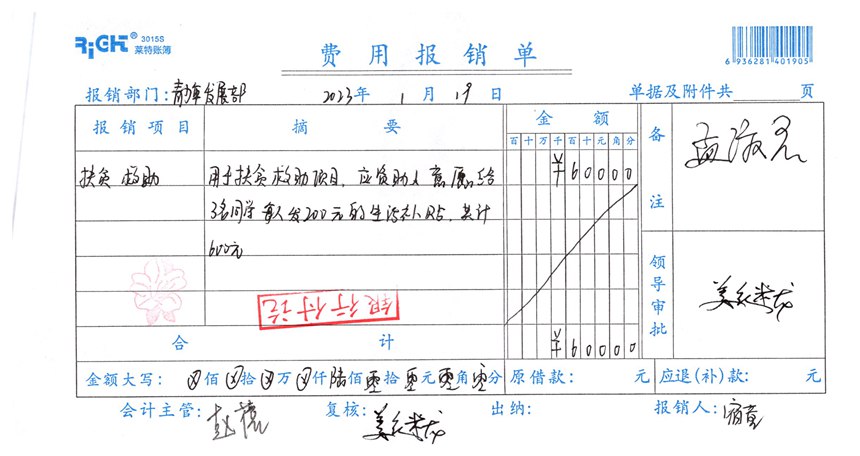 RIGHT® 3015S
莱特账簿
费用报销单
6 936281 401905
报销部门:青少年发展部 2023年 1月 19日 单据及附件共 页
报销项目 摘要 金额 备注
百十万千百十元角分
扶贫救助 用于扶贫救助项目，应资助人意愿给 ¥60000
3名同学每人发200元的生活补贴，共计
600元
银行付讫
领导审批
合计 ¥60000
金额大写: 佰 拾 万 仟 陆佰 零拾 零元 零角 零分 原借款: 元 应退(补)款: 元
会计主管: 复核: 出纳: 报销人: